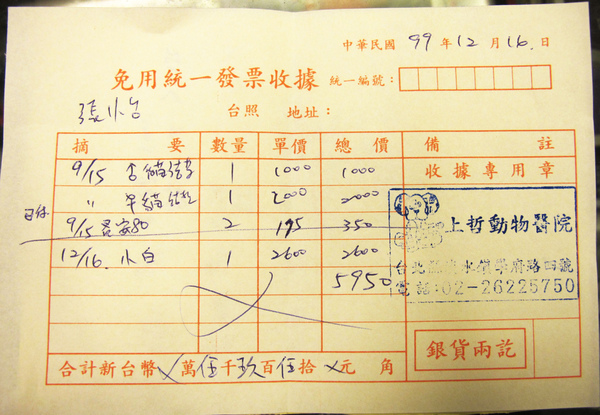 中華民國 99 年 12 月 16 日
免用統一發票收據 統一編號：
張小 台照 地址：
摘要 數量 單價 總價 備註
9/15 1 1000 1000 收據專用章
〃 1 2000 2000
9/15 2 175 350
12/16 小白 1 2600 2600
5950
上哲動物醫院
台北縣淡水鎮學府路四號
電話:02-26225750
合計新台幣 萬伍千玖百伍拾 元 角
銀貨兩訖